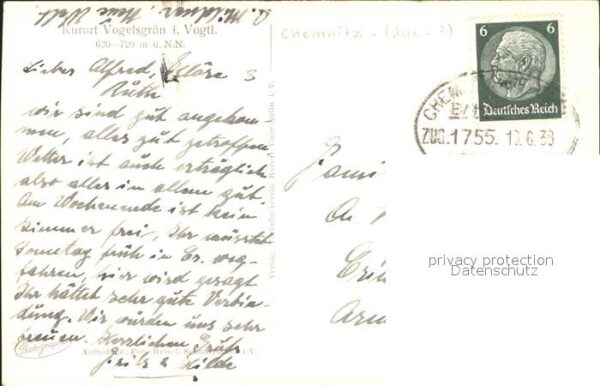 A. Mildner, Neue Welt
Kurort Vogelsgrün i. Vogtl.
620–720 m ü. N.N.
Lieber Alfred,
Ruth
wir sind gut angekom-
men, alles gut getroffen
Wetter ist auch erträglich
also alles in allem gut.
Am Wochenende ist kein
Zimmer frei, Ihr müsstet
Sonntag früh in weg-
fahren, wir wird gesagt
Ihr hättet sehr gute Verbin-
dung. Wir würden uns sehr
freuen. Herzlichen Gruß
Fritz & Hilde
Photographie
Aufnahme:
i.V.
Verlag
Chemnitz - (Aue - ?)
6 6
Deutsches Reich
CHEM
ZUG.1755. 10.6.39
Fami
An
Arn
privacy protection
Datenschutz